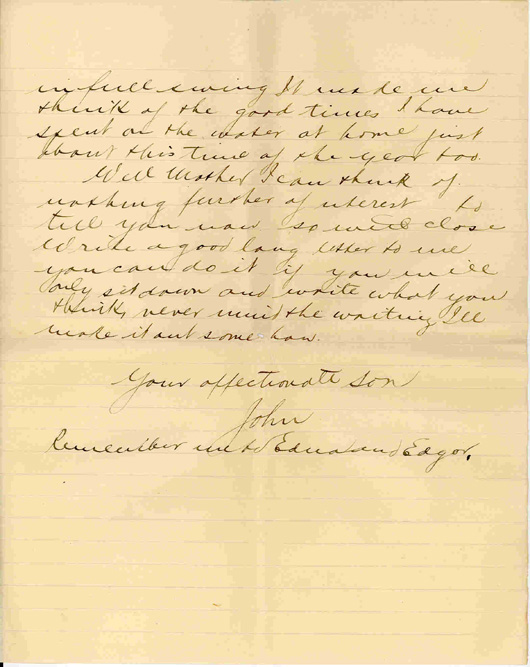 in full swing It made me
think of the good times I have
spent on the water at home just
about this time of the year too.
Well Mother I can think of
nothing further of interest to
tell you now so will close
Write a good long letter to me
you can do it if you will
only sit down and write what you
think, never mind the writing I'll
make it out some how.
Your affectionate son
John
Remember me to Edna and Edgar.